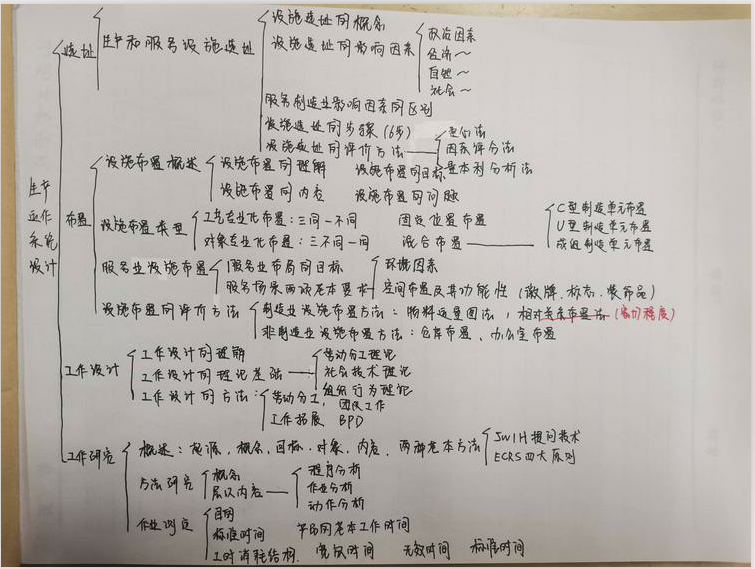 生产运作系统设计
选址
生产和服务设施选址
设施选址的概念
设施选址的影响因素
政治因素
经济～
自然～
社会～
服务制造业影响因素的区别
设施选址的步骤(6步)
设施选址的评价方法
重心法
因素评分法
量本利分析法
布置
设施布置概述
设施布置的理解 设施布置的目标
设施布置的内容 设施布置的问题
设施布置类型
工艺专业化布置：三同一不同 固定位置布置
对象专业化布置：三不同一同 混合布置
C型制造单元布置
U型制造单元布置
成组制造单元布置
服务业设施布置
服务业布局的目标
服务场景两项基本要求
环境因素
空间布置及其功能性(徽牌、标志、装饰品)
设施布置的评价方法
制造业设施布置方法：物料运量图法，相对关系布置法(密切程度)
非制造业设施布置方法：仓库布置、办公室布置
工作设计
工作设计的理解
工作设计的理论基础
劳动分工理论
社会技术理论
组织行为理论
工作设计的方法：
劳动分工、团队工作
工作拓展 BPD
工作研究
概述：起源、概念、目标、对象、内容、两种基本方法
5W1H提问技术
ECRS四大原则
方法研究
概念
层次内容
程序分析
作业分析
动作分析
作业测定
目的
标准时间 平均的基本工作时间
工时消耗结构、宽放时间 无效时间 标准时间